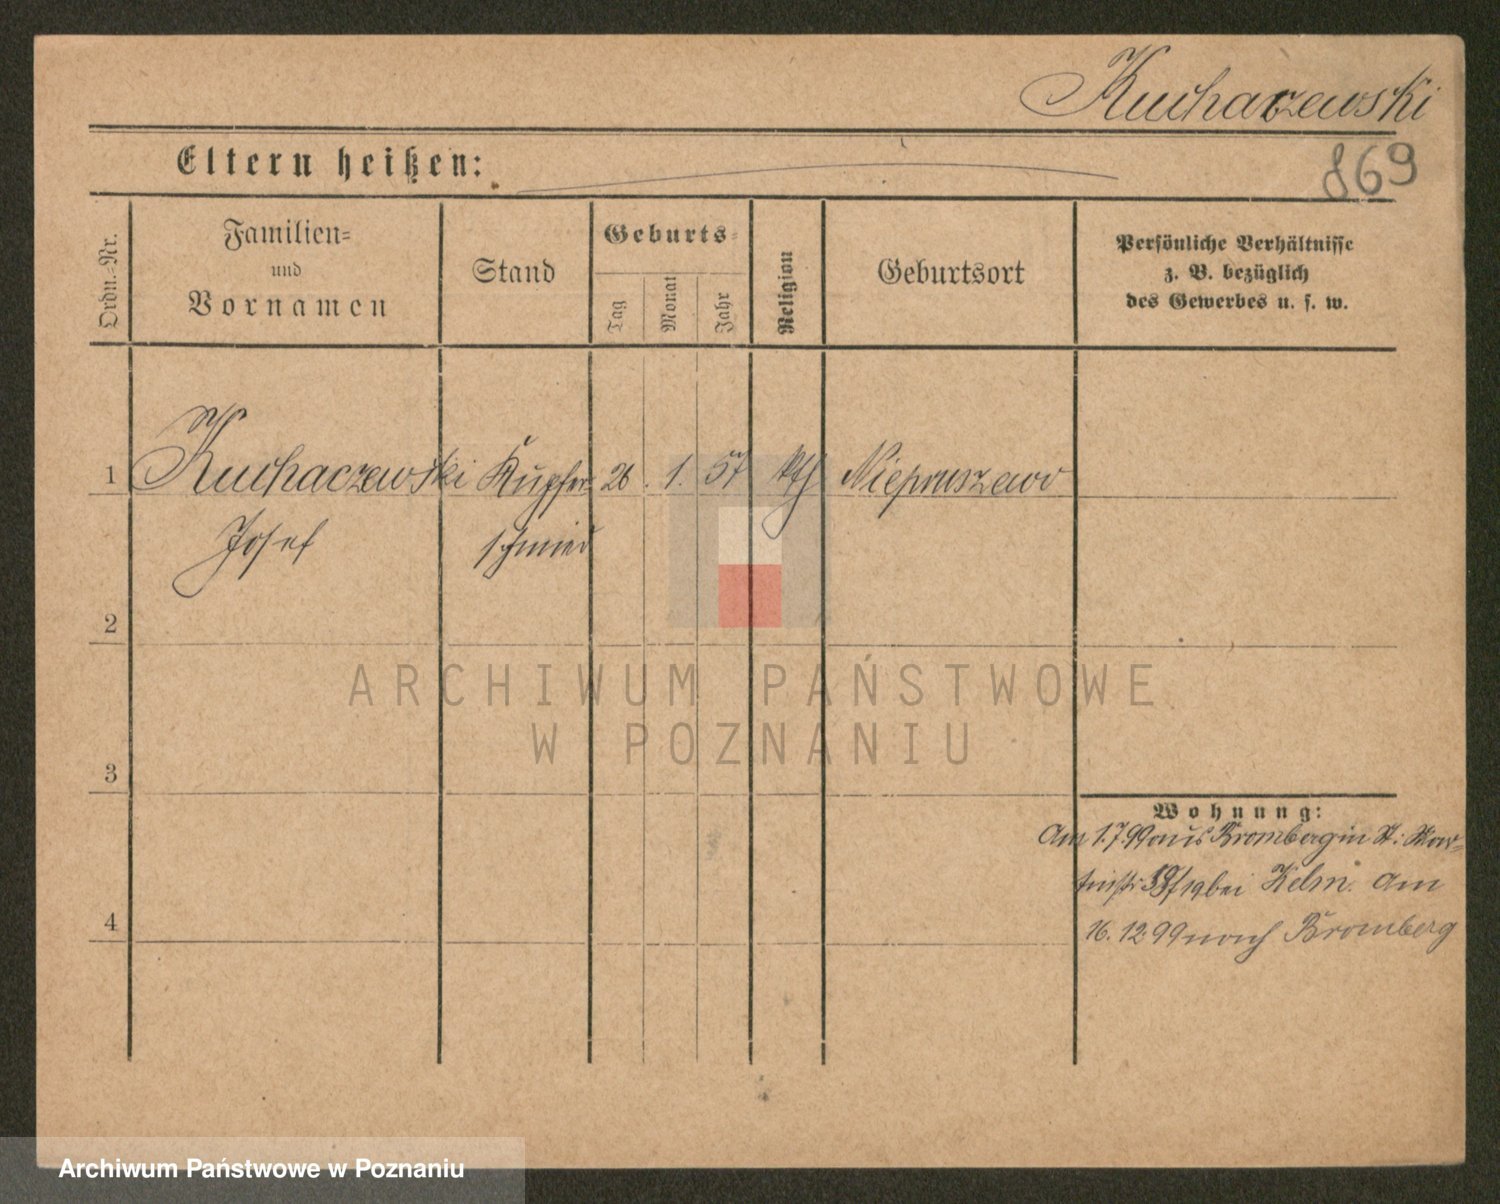 Kuchaczewski
869
Eltern heißen:
Ordn.-Nr.
Familien-
und
Vornamen
Stand
Geburts-
Tag
Monat
Jahr
Religion
Geburtsort
Persönliche Verhältnisse
z. B. bezüglich
des Gewerbes u. s. w.
1 Kuchaczewski Kupfer- 26. 1. 57 kth Niepruszewo
Josef schmied
2
3
4
Wohnung:
Am 1.7.99 aus Bromberg in St: Mar-
tinstr. bei Kelm. Am
16. 12 99 nach Bromberg
ARCHIWUM PAŃSTWOWE
W POZNANIU
Archiwum Państwowe w Poznaniu